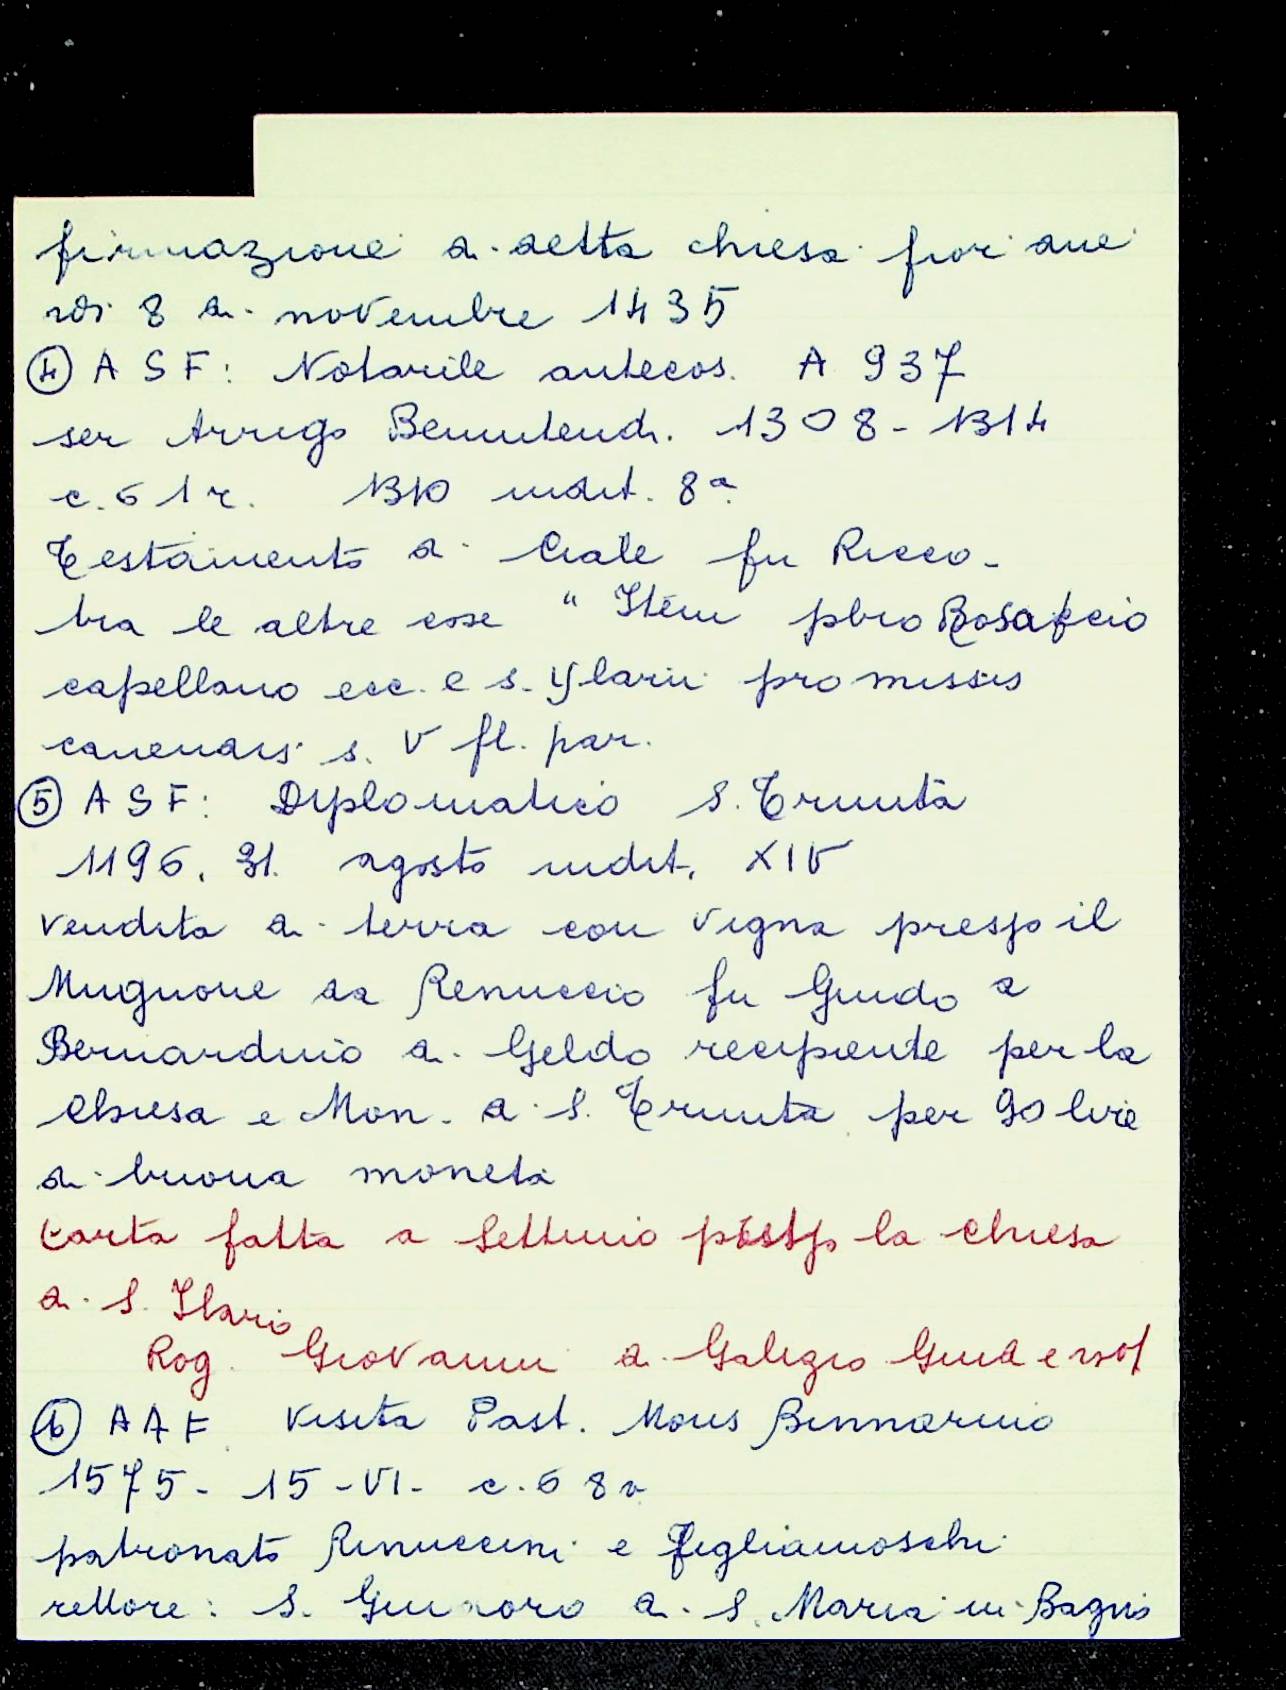 firmazione di detta chiesa fior. due
rdi 8 di novembre 1435
④ A S F: Notarile antecos. A 937
ser Arrigo Benintendi. 1308 - 1314
c. 61 r. 1310 indit. 8ª
Testamento di Ciale fu Ricco -
tra le altre cose " Item pbro Bosaccio
capellano ecc. e s. Ylarii pro missis
canendis s. V fl. par.
⑤ A S F: Diplomatico S. Trinità
1196. 31. agosto indit. XIV
vendita di terra con vigna presso il
Mugnone da Renuccio fu Guido a
Bernarduio di Geldo recipiente per la
Chiesa e Mon. di S. Trinita per 90 lire
di buona moneta
Carta fatta a Settimo presso la Chiesa
di S. Ilario
Rog. Giovanni di Galizio Giud e not
⑥ A A F Visita Past. Mons Binnarino
1575 - 15 - VI - c. 68 v
patronato Rinuccini e Figliamoschi
rettore: S. di S. Maria in Bagno